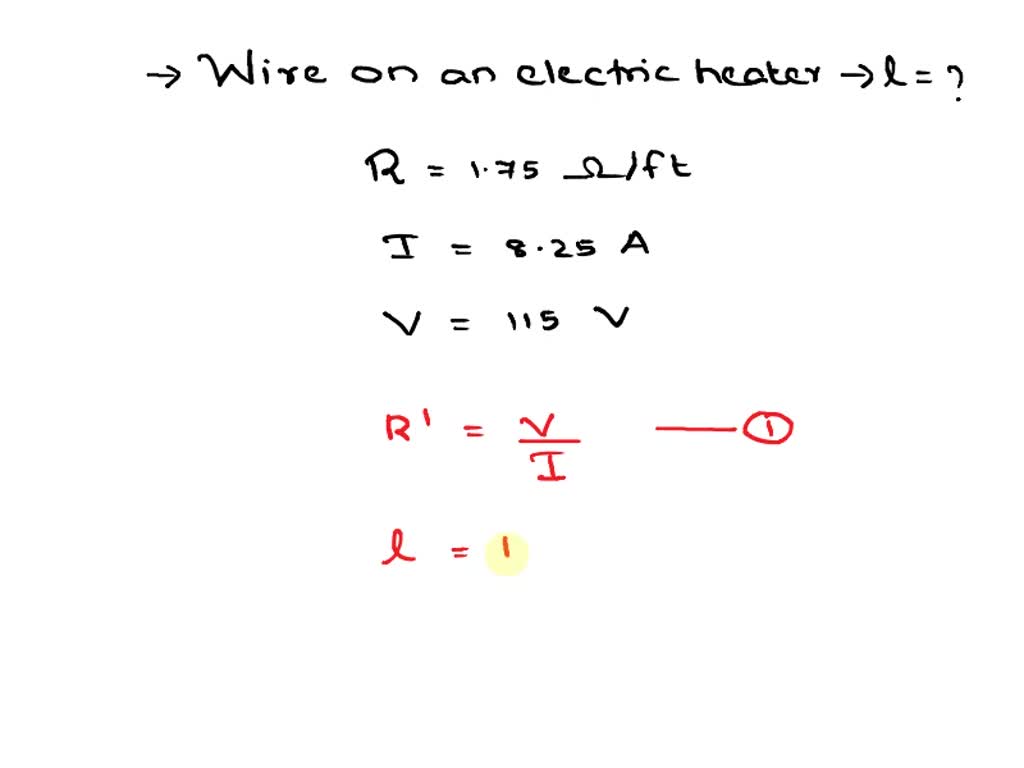 → Wire on an electric heater → l = ?
R = 1.75 Ω/ft
I = 8.25 A
V = 115 V
R' = V/I —— ①
l = 1